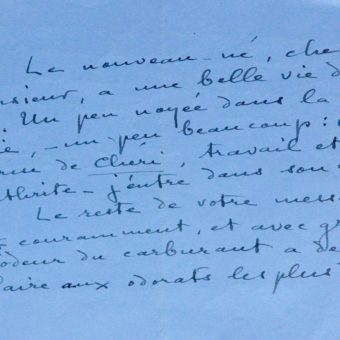 Le nouveau-né, che
nsieur, a une belle vie d
. Un peu noyée dans la
ie, - un peu beaucoup :
rise de Chéri, travail et
thrite - j'entre dans son
Le reste de votre mess
couramment, et avec gr
odeur du carburant a de
laire aux odorats les plus